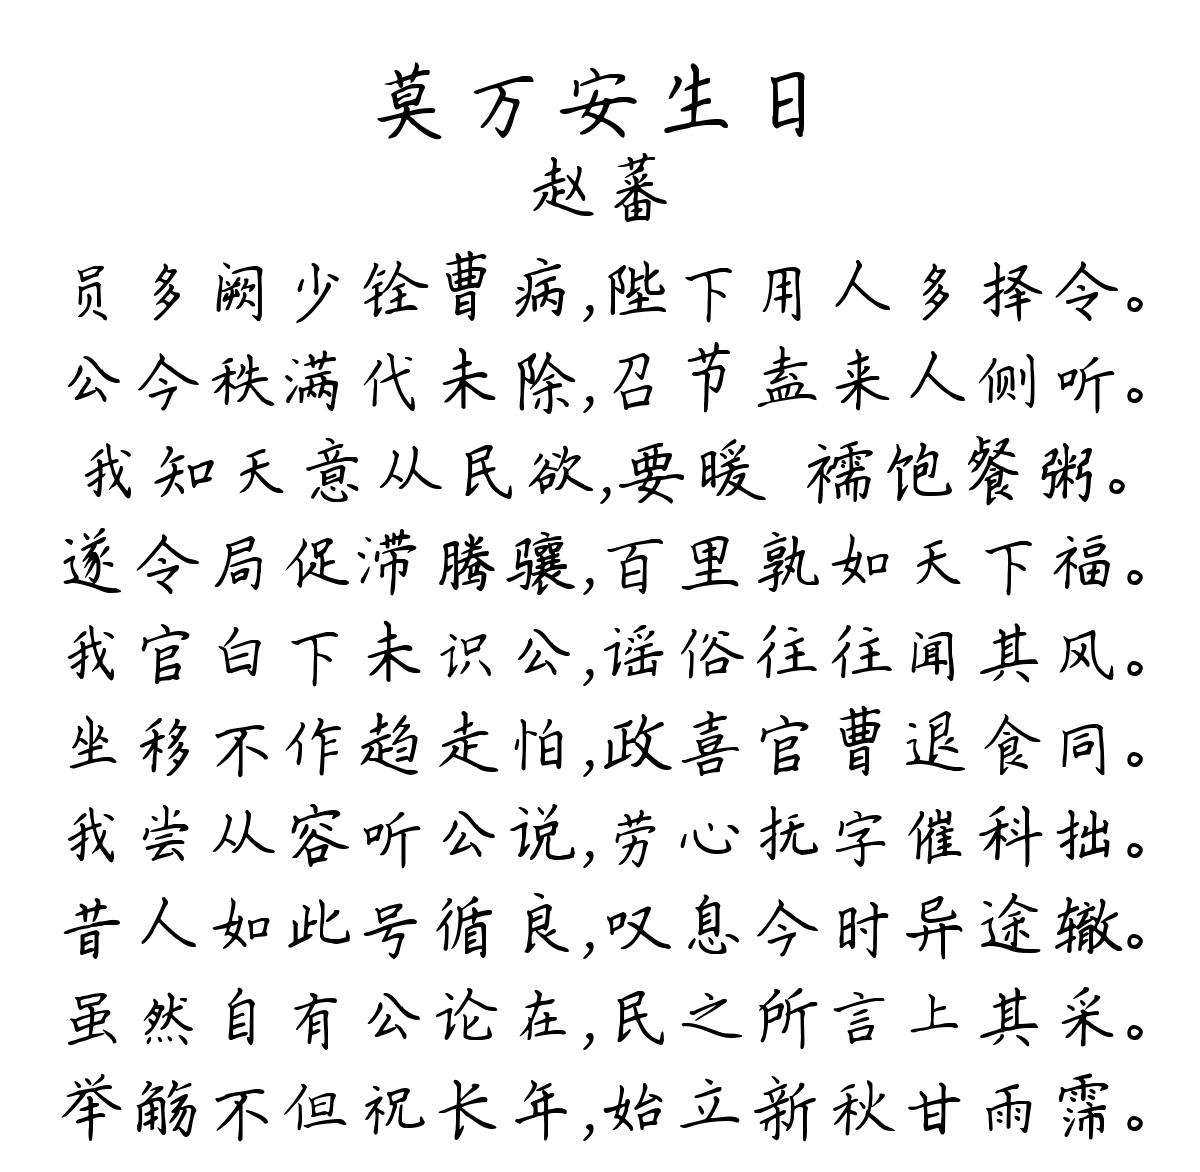 莫万安生日
赵蕃
员多阙少铨曹病,陛下用人多择令。
公今秩满代未除,召节盍来人侧听。
我知天意从民欲,要暖 襦饱餐粥。
遂令局促滞腾骧,百里孰如天下福。
我官白下未识公,谣俗往往闻其风。
坐移不作趋走怕,政喜官曹退食同。
我尝从容听公说,劳心抚字催科拙。
昔人如此号循良,叹息今时异途辙。
虽然自有公论在,民之所言上其采。
举觞不但祝长年,始立新秋甘雨霈。